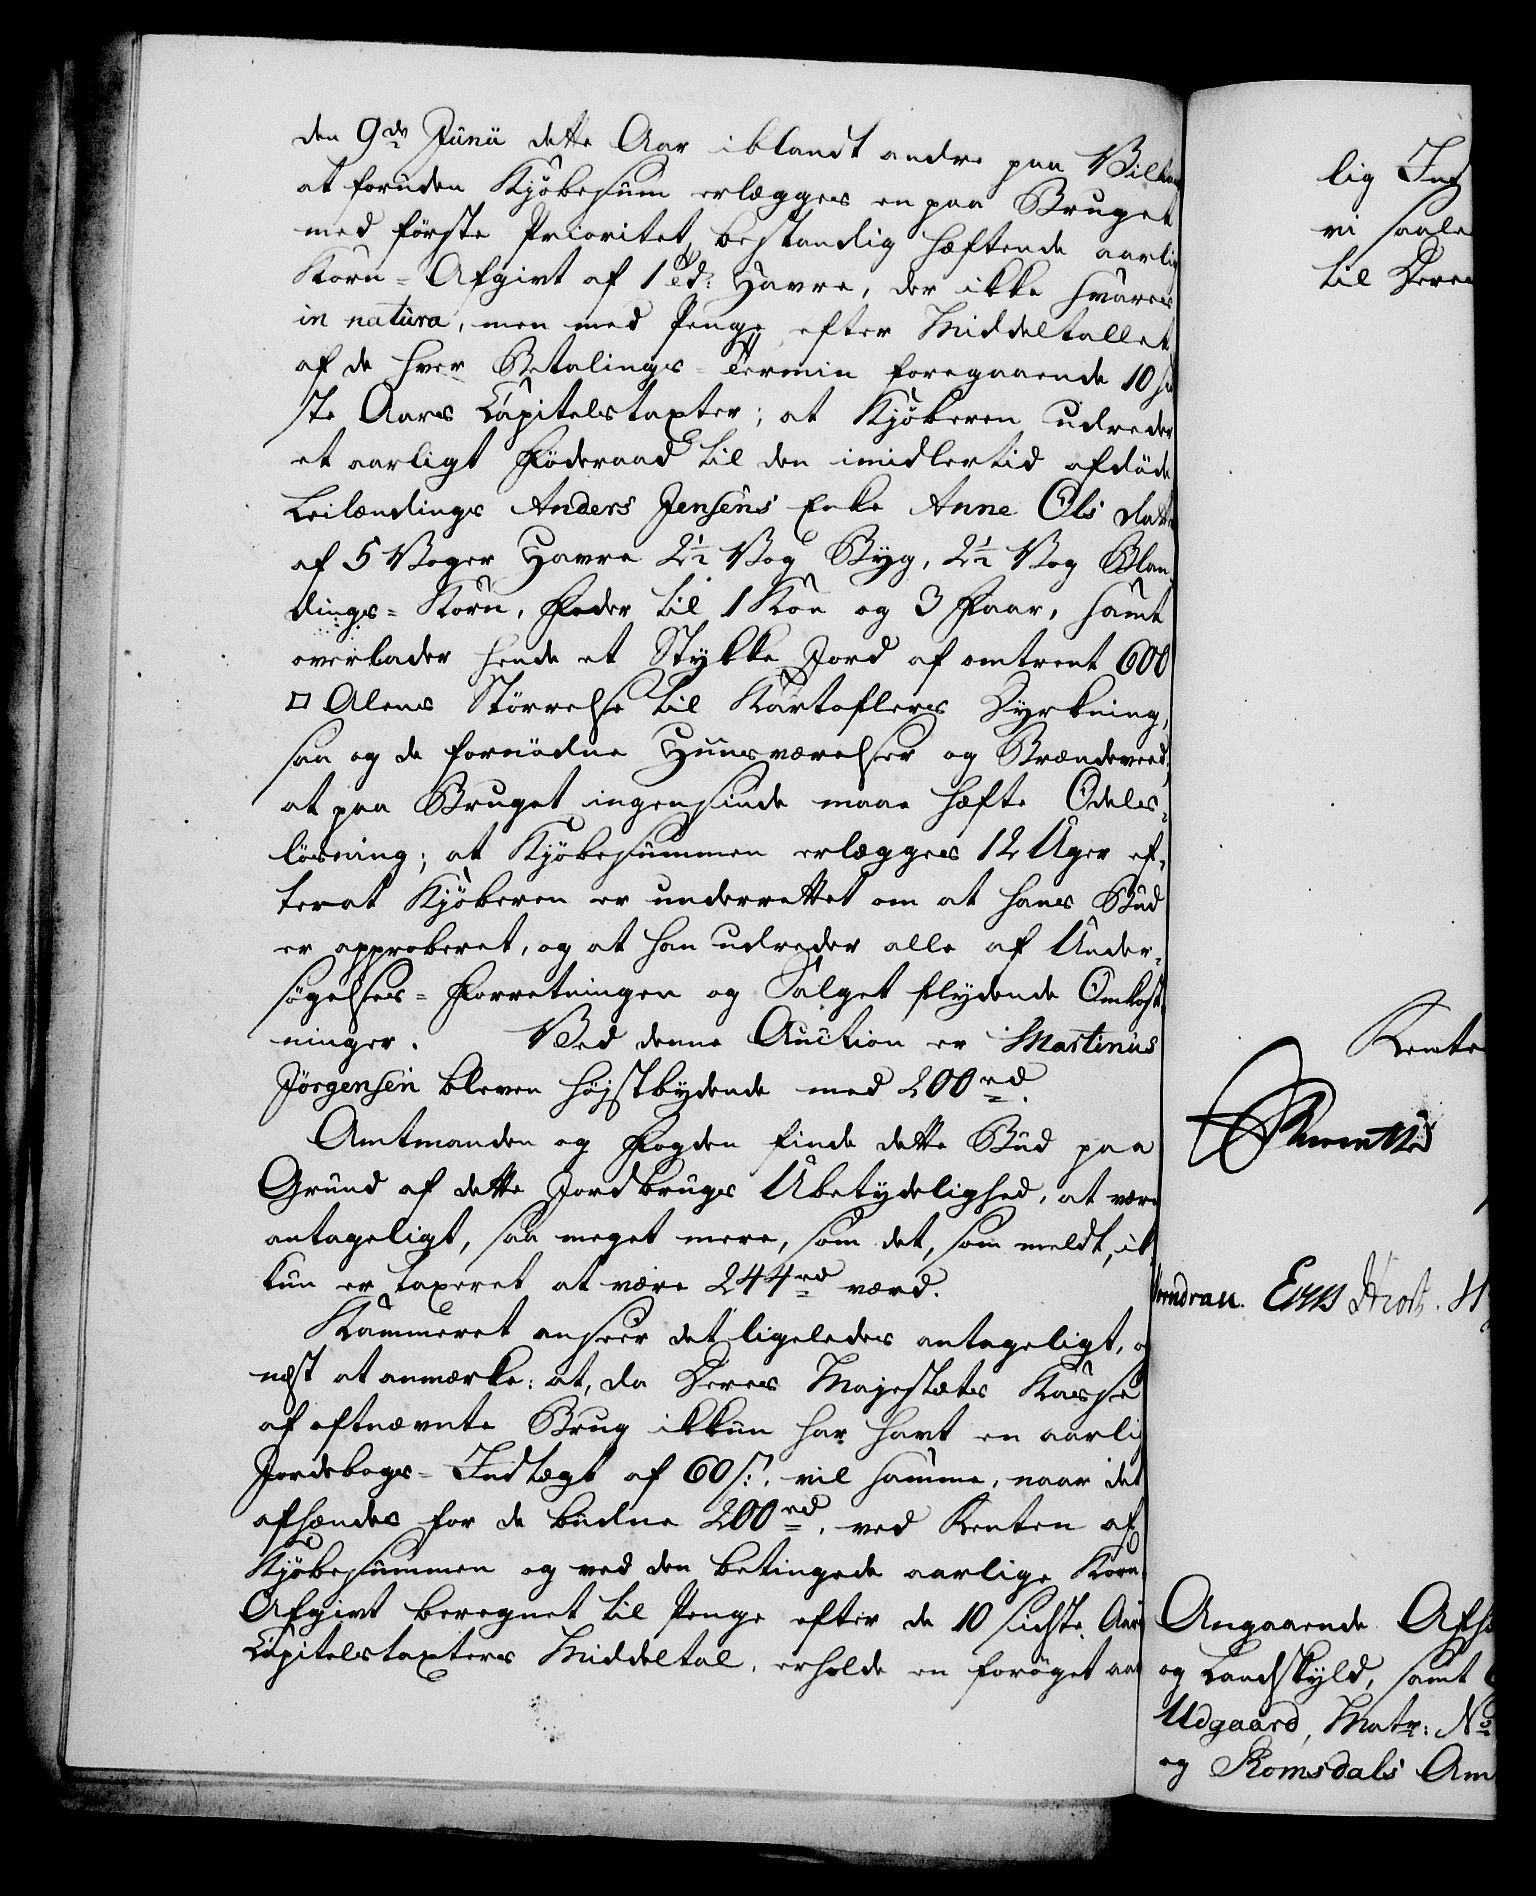 den 9de Junii dette Aar iblandt andre paa Vilkaar
at foruden Kjöbesum erlægges en paa Bruget
med förste Prioritet bestandig hæftende aarlig
Korn-Afgivt af 1 Td: Havre, der ikke svares
in natura, men med Penge efter Middeltallet
af de hver Betalings-Termin foregaaende 10 si
ste Aars Capitelstaxter; at Kjöberen udreder
et aarligt Föderaad til den imidlertid afdöde
Leilændings Anders Jensens Enke Anne Ols datter
af 5 Voger Havre 2½ Vog Byg, 2½ Vog Blan
dings-Korn, Foder til 1 Koe og 3 Faar, samt
overlader hende et Stykke Jord af omtrent 600
□ Alens Störrelse til Kartoflers Dyrkning,
saa og de fornödne Huusværelser og Brændeveed,
at paa Bruget ingensinde maae hæfte Odels-
lösning; at Kjöbesummen erlægges 12 Uger ef-
terat Kjöberen er underrettet om at hans Bud
er approberet, og at han udreder alle af Under-
sögelses-Forretningen og Salget flydende Omkost-
ninger. Ved denne Auction er Martinus
Jörgensen bleven højstbydende med 200 rd.
Amtmanden og Fogden finde dette Bud paa
Grund af dette Jordbrugs Ubetydelighed, at være
antageligt, saa meget mere, som det, som meldt, ik
kun er taxeret at være 244 rd værd.
Kammeret anseer det ligeledes antageligt, o
næst at anmærke: at, da Deres Majestæts Kasse
af oftnævnte Brug ikkun har havt en aarli
Jordebogs-Indtægt af 60 s., vil samme, naar det
afhændes for de budne 200 rd, ved Renten af
Kjöbesummen og ved den betingede aarlige Korn-
Afgivt beregnet til Penge efter de 10 sidste Aars
Capitelstaxters Middeltal, erholde en foröget aar
lig Ind
vi saale
til Deres
Rente
Angaaende Afhæ
og Landskyld, samt
Udgaard, Matr: No
og Romsdals Am